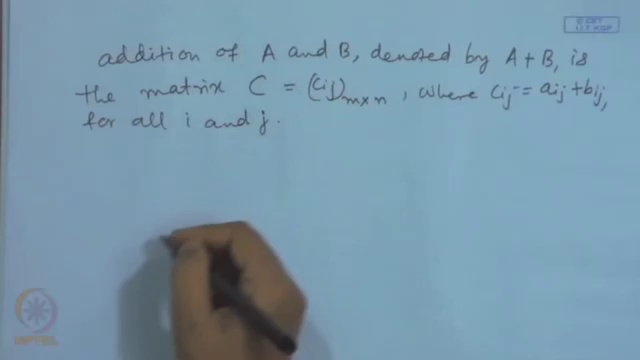 © CET
I.I.T. KGP
addition of A and B, denoted by A + B, is
the matrix C = (Cij)m×n, where Cij = aij + bij,
for all i and j.
NPTEL